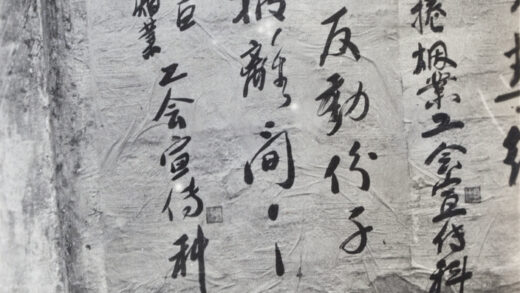 捲烟業工会宣传科
反動份子
離间！！
業工会宣传科